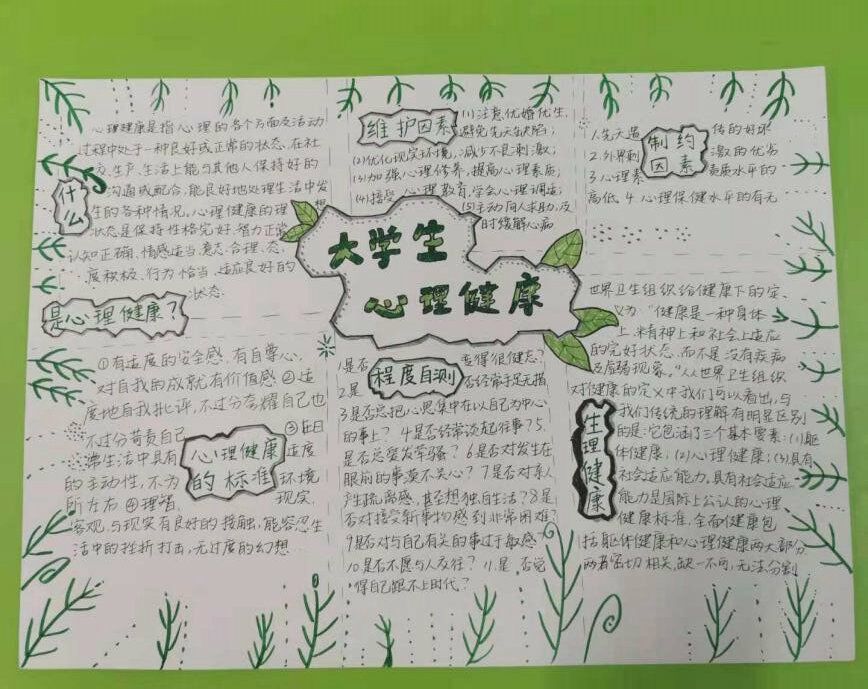 大学生
心理健康
什么
是心理健康？
心理健康是指心理的各个方面及活动
过程中处于一种良好或正常的状态，在社
交、生产、生活上能与其他人保持好的
沟通或配合，能良好地处理生活中发
生的各种情况。心理健康的理想
状态是保持性格完好、智力正常
认知正确、情感适当、意志合理、态
度积极、行为恰当、适应良好的
状态
心理健康
的标准
①有适度的安全感，有自尊心，
对自我的成就有价值感②适
度地自我批评，不过分夸耀自己也
不过分苛责自己
③在日
常生活中具有适度
的主动性，不为环境
所左右④理智，现实，
客观，与现实有良好的接触，能容忍生
活中的挫折打击，无过度的幻想
维护因素
(1)注意优婚优生，
避免先天缺陷；
(2)优化现实环境，减少不良刺激；
(3)加强心理修养，提高心理素质；
(4)接受心理教育，学会心理调适；
(5)主动向人求助，及
时缓解心病
制约
因素
1.先天遗传的好坏
2.外界刺激的优劣
3.心理素质水平的
高低 4.心理保健水平的有无
程度自测
1.是否变得很健忘？
2.是否经常手足无措
3是否总把心思集中在以自己为中心
的事上？4是否经常谈起往事？5.
是否总爱发牢骚？6是否对发生在
眼前的事漠不关心？7是否对亲人
产生疏离感，甚至想独自生活？8是
否对接受新事物感到非常困难？
9是否对与自己有关的事过于敏感
10是否不愿与人交往？11.是否觉
得自己跟不上时代？
生理健康
世界卫生组织给健康下的定
义为“健康是一种身体
上、精神上和社会上适应
的完好状态，而不是没有疾病
及虚弱现象。”从世界卫生组织
对健康的定义中我们可以看出，与
我们传统的理解有明显区别
的是：它包涵了三个基本要素：(1)躯
体健康；(2)心理健康；(3)具有
社会适应能力。具有社会适应
能力是国际上公认的心理
健康标准，全面健康包
括躯体健康和心理健康两大部分
两者密切相关，缺一不可，无法分割